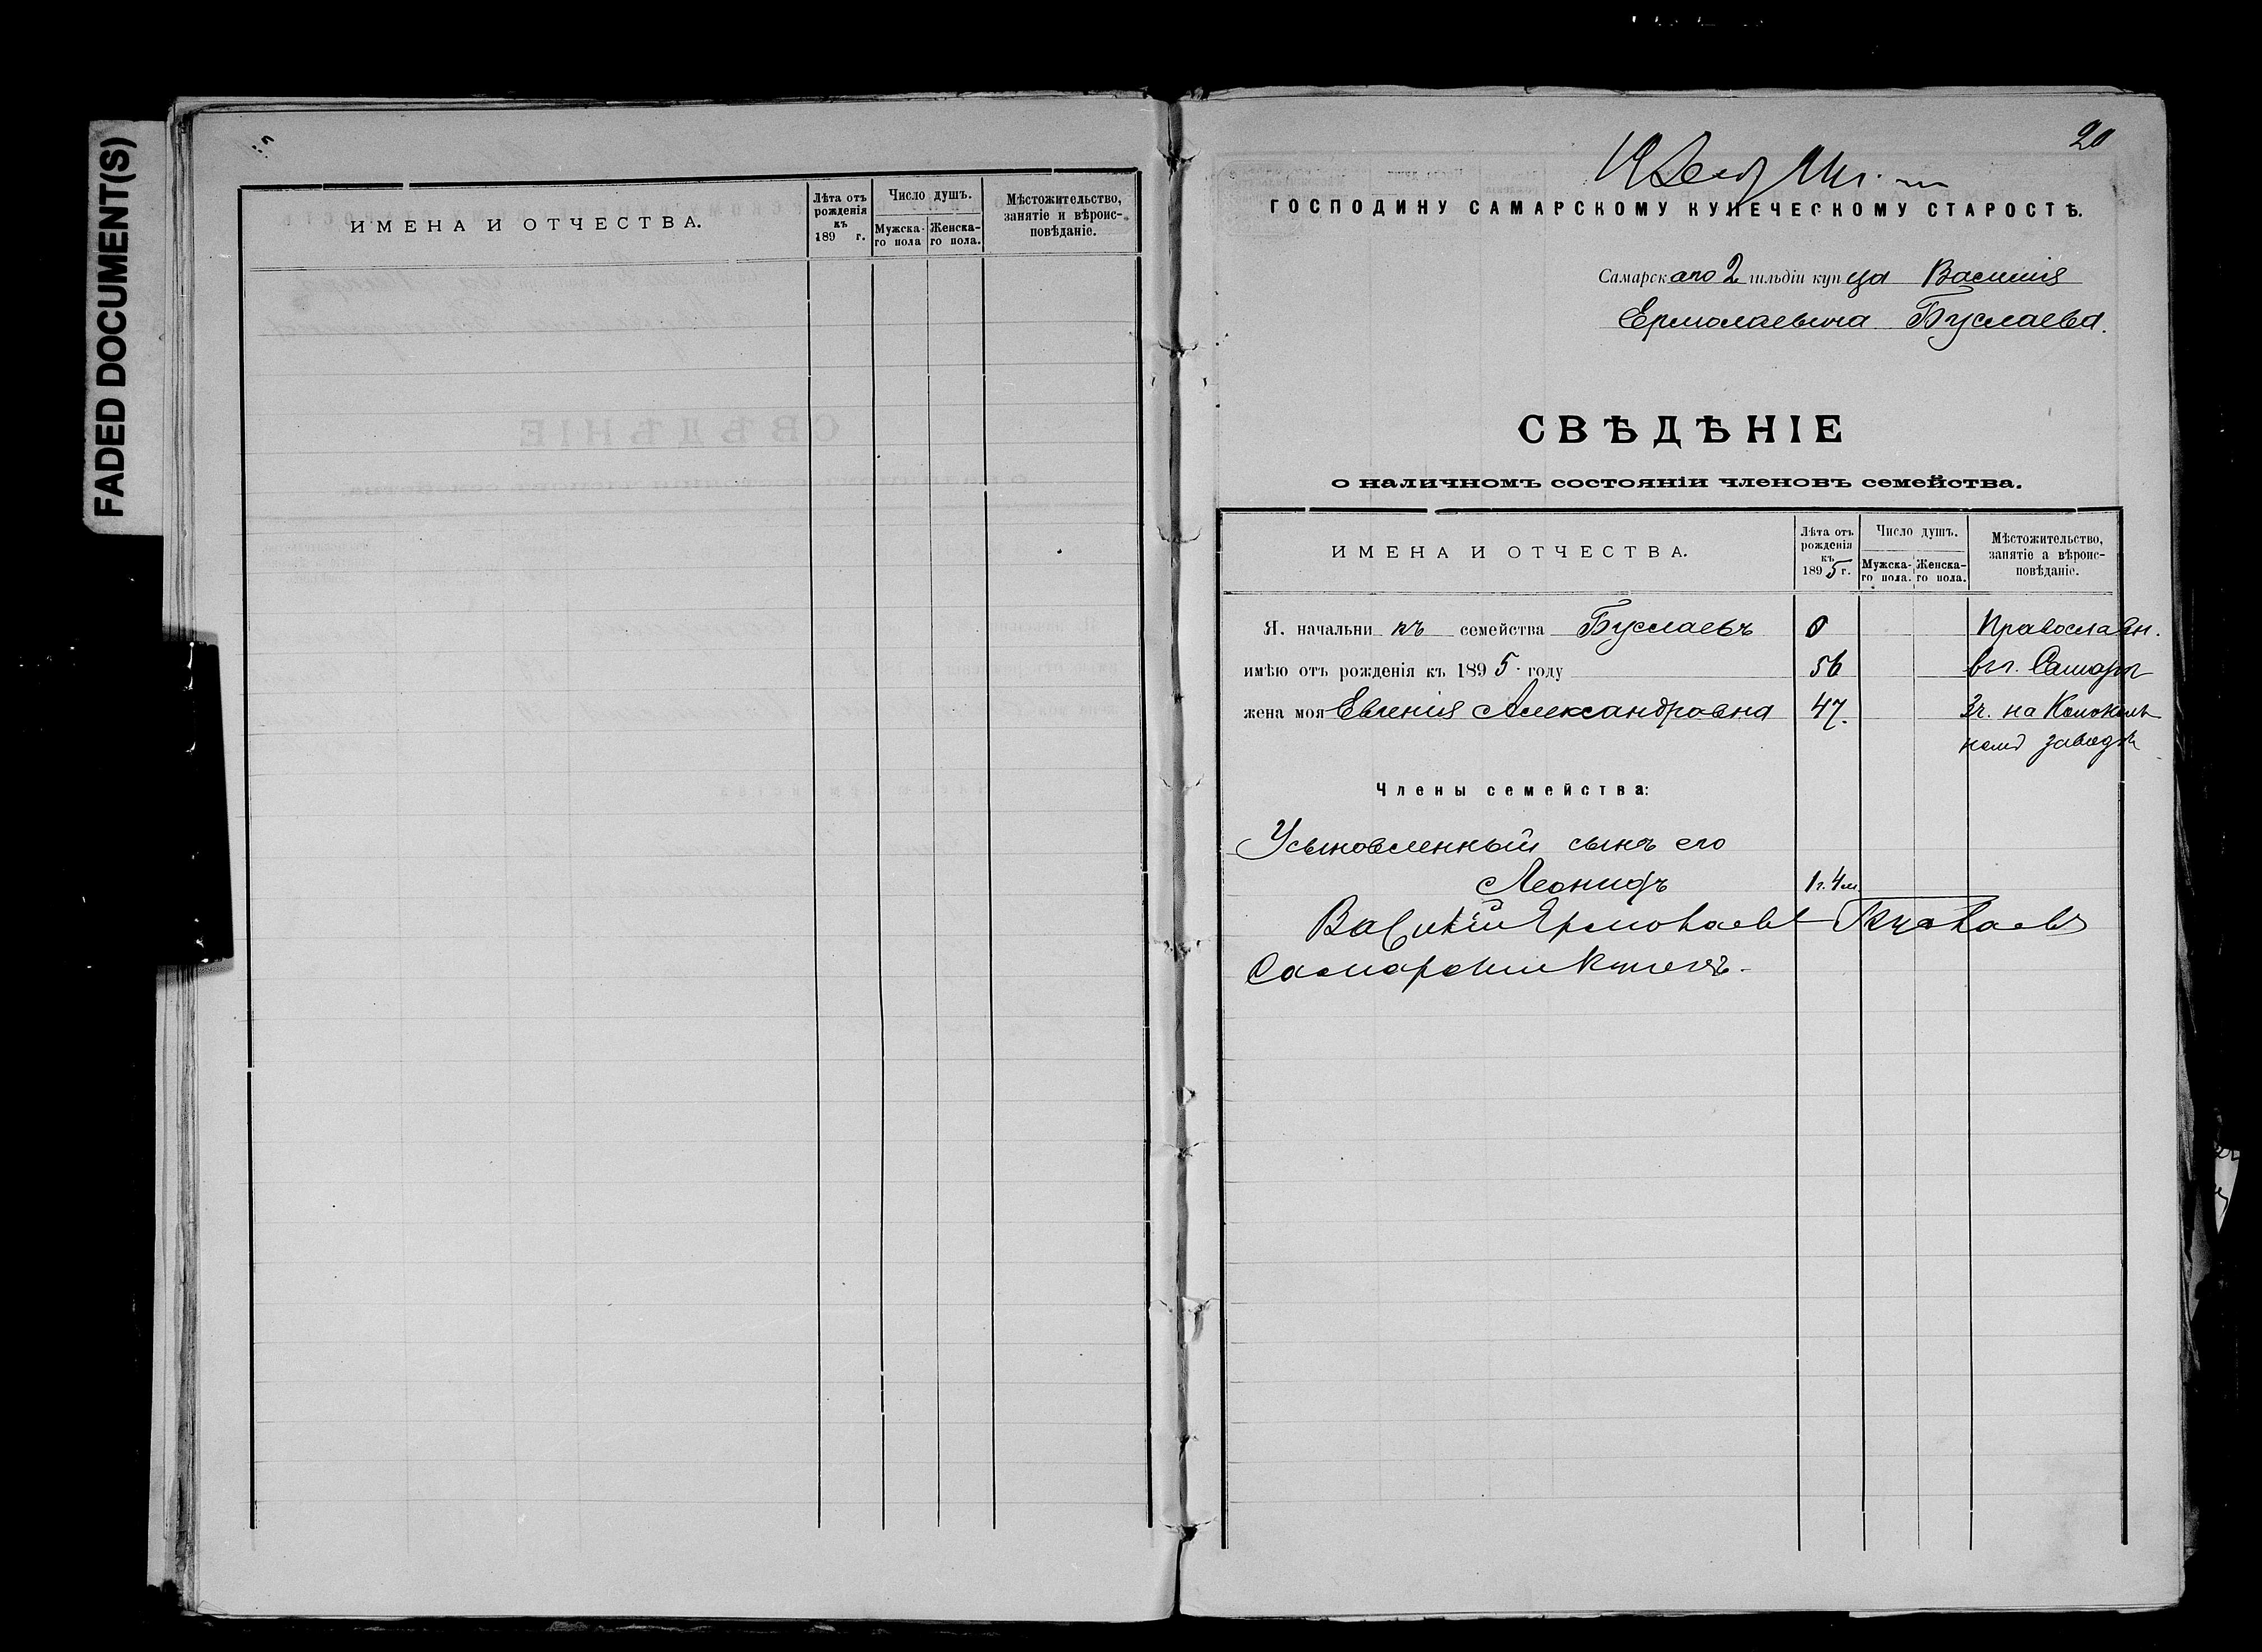 FADED DOCUMENT(S)
ИМЕНА И ОТЧЕСТВА.
Лѣта отъ рожденія къ 189 г.
Число душъ.
Мужска-го пола
Женска-го пола.
Мѣстожительство, занятіе и вѣроис-повѣданіе.
20
ГОСПОДИНУ САМАРСКОМУ КУПЕЧЕСКОМУ СТАРОСТѢ.
Самарскаго 2 гильдіи купца Василія
Ермолаевича Буслаева.
СВѢДѢНІЕ
о наличномъ состояніи членовъ семейства.
ИМЕНА И ОТЧЕСТВА.
Лѣта отъ рожденія къ 1895 г.
Число душъ.
Мужска-го пола.
Женска-го пола.
Мѣстожительство, занятіе а вѣроис-повѣданіе.
Я. начальникъ семейства Буслаевъ 0 Православн.
имѣю отъ рожденія къ 1895 году 56 въ г. Самарѣ
жена моя Евгенія Александровна 47. 3 ч. на Колоколь
номъ заводѣ
Члены семейства:
Усыновленный сынъ его
Леонидъ 1 г. 4 м.
Василий Ермолаевъ Буслаевъ
Самарский Купецъ.